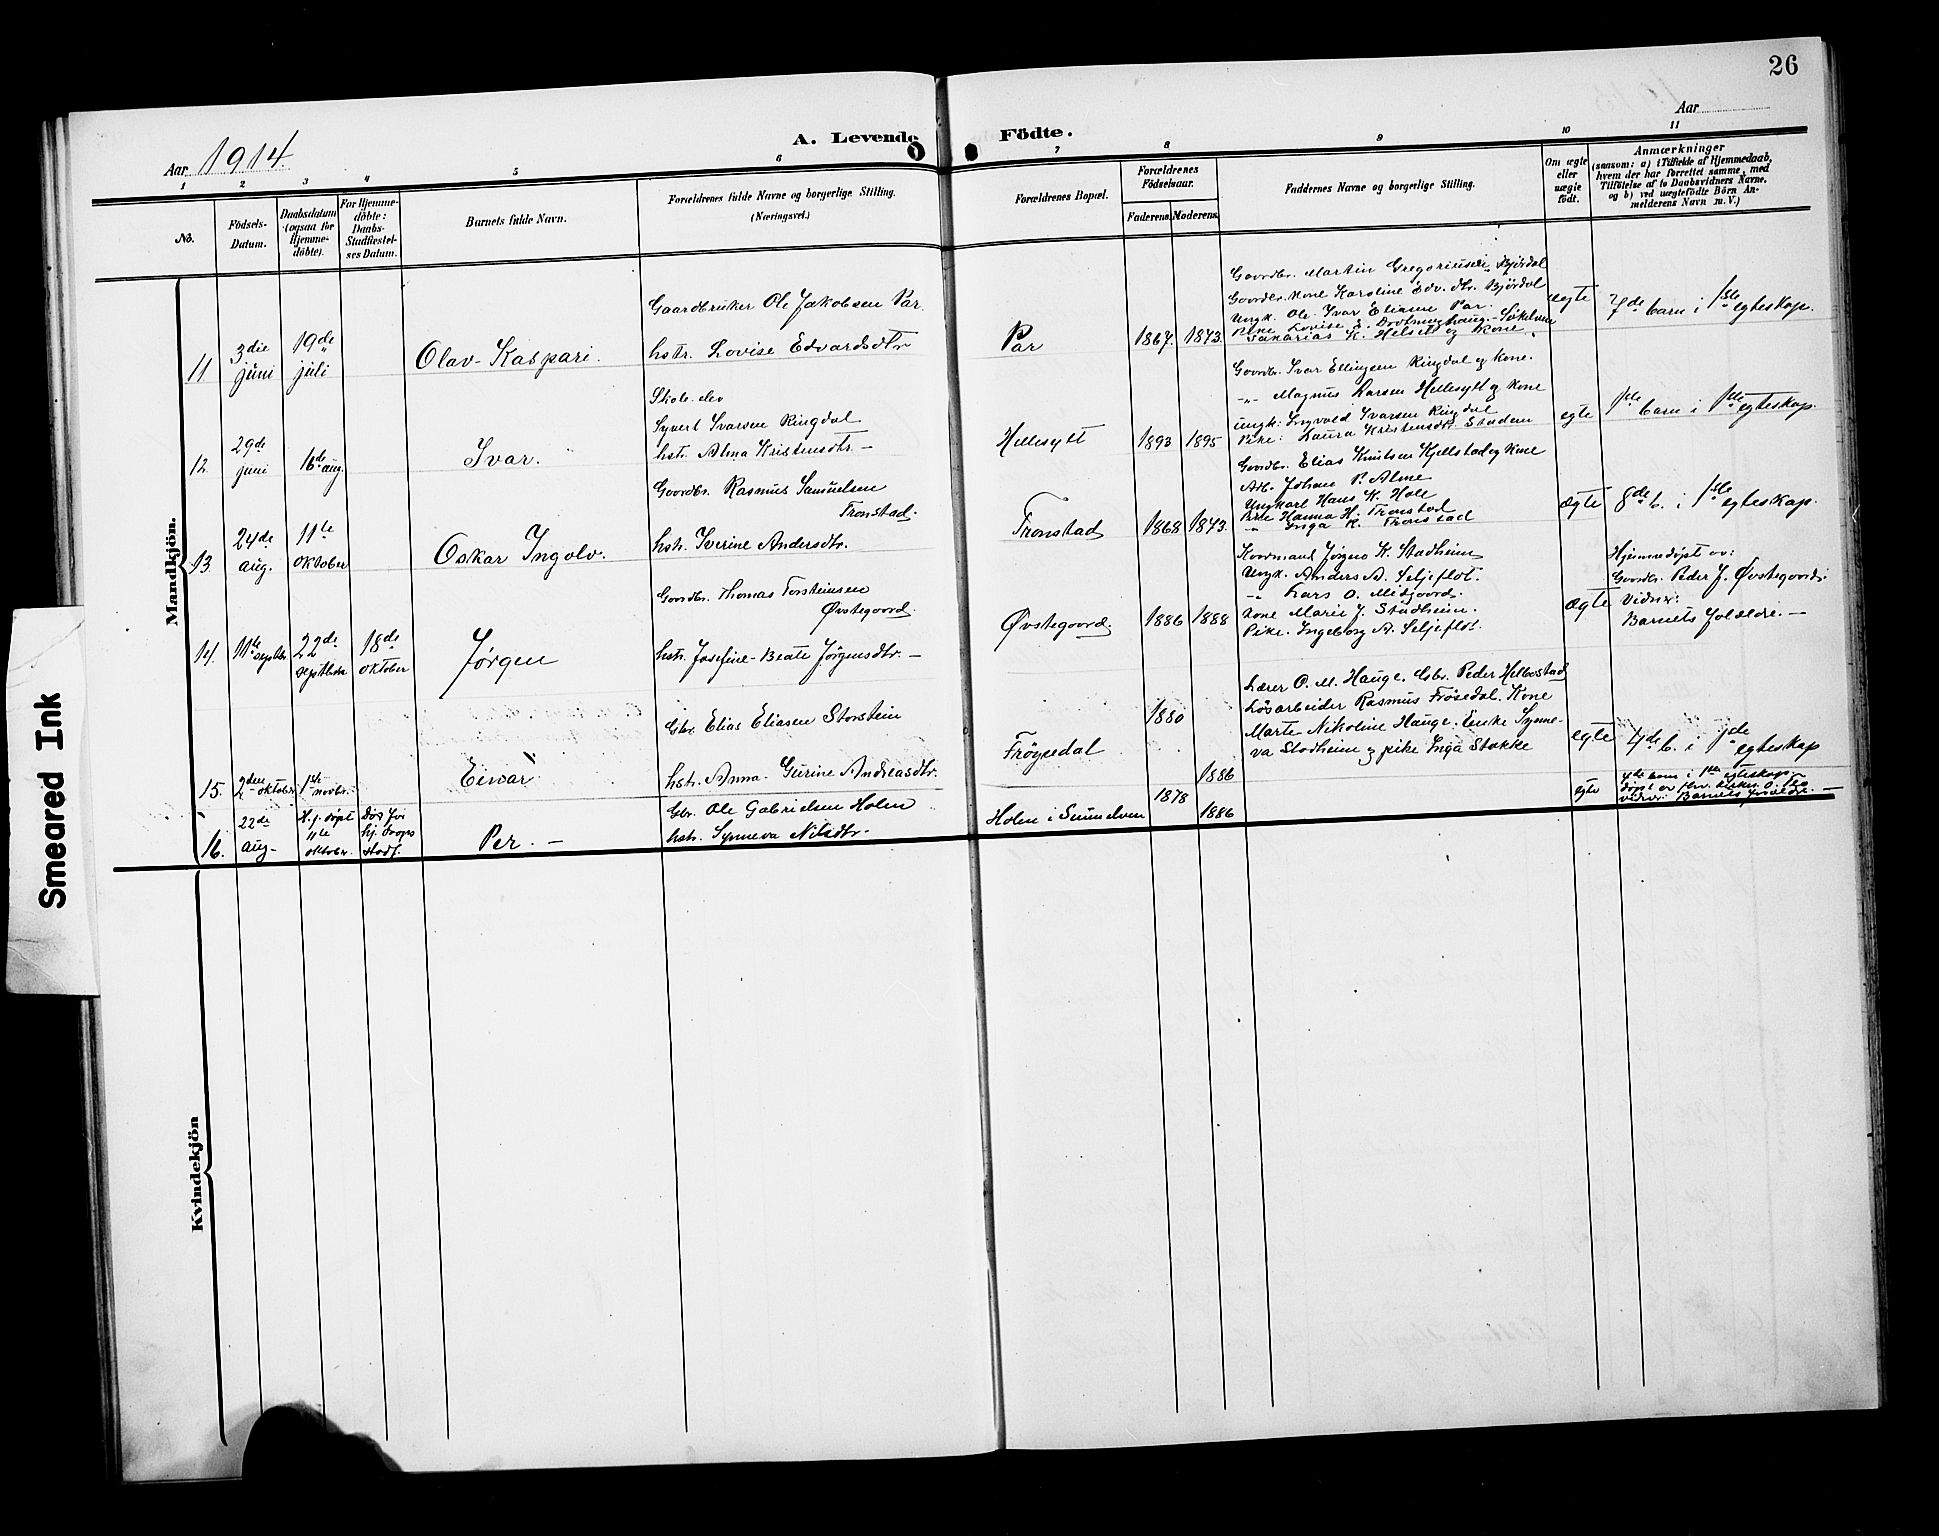 26
Aar 1914.
A. Levende Födte.
Aar
1 2 3 4 5 6 7 8 9 10 11
No.
Födsels-Datum.
Daabsdatum (ogsaa for Hjemmedöbte).
For Hjemmedöbte: Daabs-Stadfæstelses Datum.
Barnets fulde Navn.
Forældrenes fulde Navne og borgerlige Stilling.
(Næringsvei.)
Forældrenes Bopæl.
Forældrenes Födselsaar.
Faderens. Moderens.
Faddernes Navne og borgerlige Stilling.
Om ægte eller uægte födt.
Anmærkninger
(saasom: a) i Tilfælde af Hjemmedaab, hvem der har forrettet samme, med Tilföielse af to Daabsvidners Navne, og b) ved uægtefödte Börn Anmelderens Navn m. V.)
Mandkjön.
11
3die juni
19de juli
Olav-Kaspari.
Gaardbruker Ole Jakobsen Par.
hstr. Lovise Edvardsdtr
Par
1867. 1873.
Goordbr. Martin Gregoriusen Bjørdal
Goordbr. kone Karoline Edv. dtr. Bjørdal
Ungk. Ole Ivar Eliasen Par.
Pike Lovise E.
Sakarias K. Helset og kone
egte
7de barn i 1ste egteskap.
12.
29de juni
16de aug.
Ivar.
Skole elev
Syvert Ivarsen Ringdal
hstr. Alma Kristensdtr. —
Hellesylt
1893 1895
Goordbr. Ivar Ellingsen Ringdal og kone.
-"- Magnus Larsen Hellesylt og kone
ungk: Ingvald Ivarsen Ringdal
Pike: Laura Kristensdtr. Stadem
egte
1ste barn i 1ste egteskap.
13.
24de aug.
11te oktober
Oskar Ingolv.
Goordbr. Rasmus Samuelsen
Tronstad.
hstr. Iverine Andersdtr.
Tronstad
1868 1873.
Goordbr. Elias Knutsen Kjellstad og kone
Arb. Johan P. Alme
Ungkarl Hans K. Hole
Pike Hanna H. Tronstad
" Inga K. Tronstad
ægte
8de b. i 1ste egteskap.
14.
11te septbr.
22de septbr
18de oktober
Jørgen
Goordbr. Thomas Torsteinsen
Øvstegoord.
hstr. Josefine-Beate Jørgensdtr. —
Øvstegoord.
1886 1888
Koordmand Jørgen K. Stadheim
Ungk. Anders A. Seljeflot.
-"- Lars O. Midgoord.
kone Marie J. Stadheim.
Pike. Ingeborg A. Seljeflot.
ægte
Hjemmedøpt ov:
Goordbr. Peder J. Øvstegoord:
Vidner:
Barnets forældre. —
15.
2den oktober
1ste novbr.
Einar
Gbr. Elias Eliasen Storstein
hstr. Anna-Gurine Andreasdtr.
Frøysedal
1880
1886
Lærer O. M. Hauge. Gbr. Peder Hellestad
Løsarbeider Rasmus Frøsedal. Kone
Marte Nikoline Hauge. Enke Synne-
va Stadheim og pike Inga Stakke
egte
4de b. i 1ste egteskap
16.
22de aug-
Hj. døpt
11te oktober.
Død før
hj. daaps
stadf.
Per. —
Gbr. Ole Gabrielsen Holen
hstr. Synneva Nilsdtr.
Holen i Sunnelven
1878
1886
egte
barn i 1ste egteskap
døpt ov
vidner: Barnets forældre. —
Kvindekjön
Smeared Ink